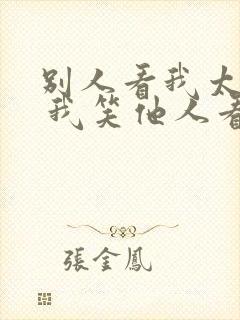 别人看我太
我笑他人看
張金鳳